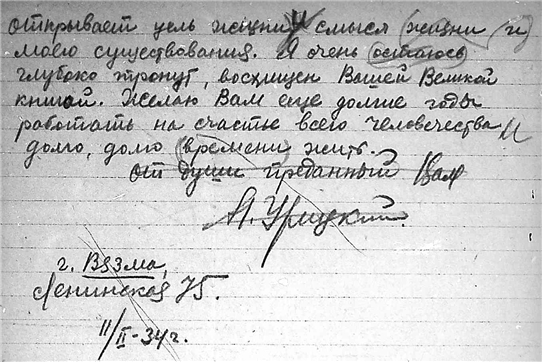 открывает цель жизни и смысл (жизни и)
моего существования. Я очень (остаюсь
глубоко тронут, восхищен Вашей Великой
книгой. Желаю Вам еще долгие годы
работать на счастье всего человечества и
долго, долго (времени жить.
от души преданный Вам
г. Вязма,
Ленинская 75.
11/II-34 г.